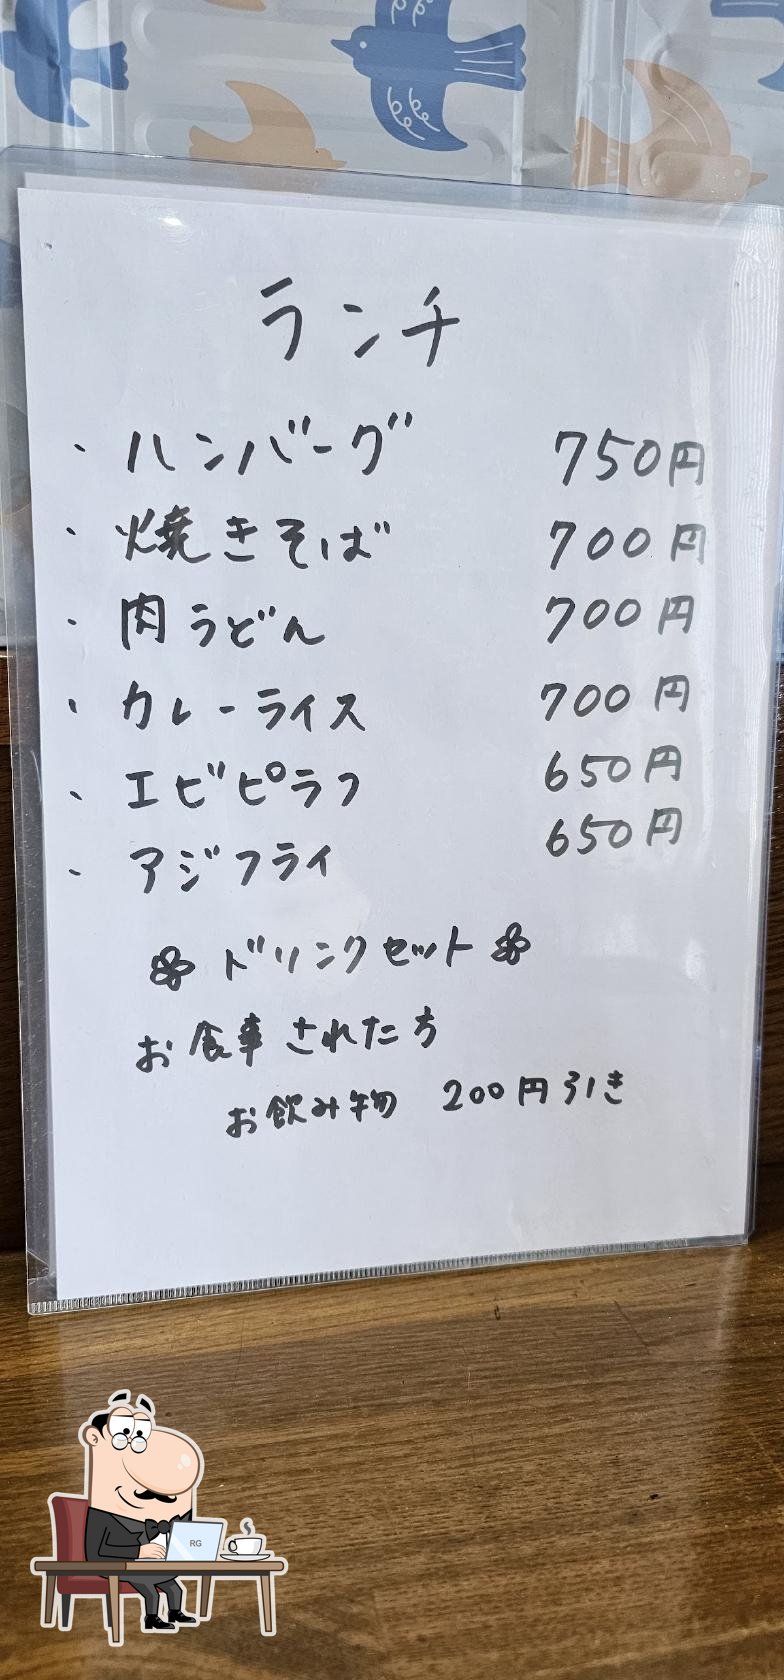 ランチ
・ハンバーグ 750円
・焼きそば 700円
・肉うどん 700円
・カレーライス 700円
・エビピラフ 650円
・アジフライ 650円
ドリンクセット
お食事された方
お飲み物 200円引き
RG